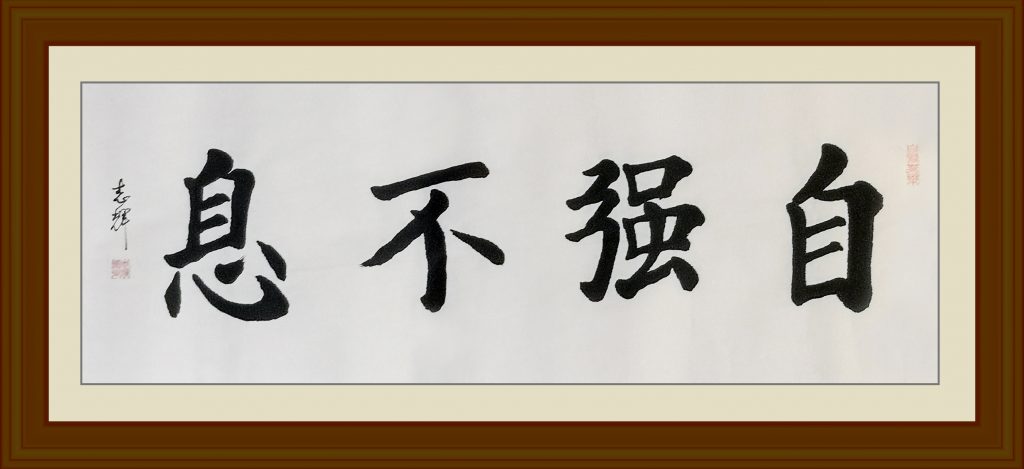 自强不息
志辉